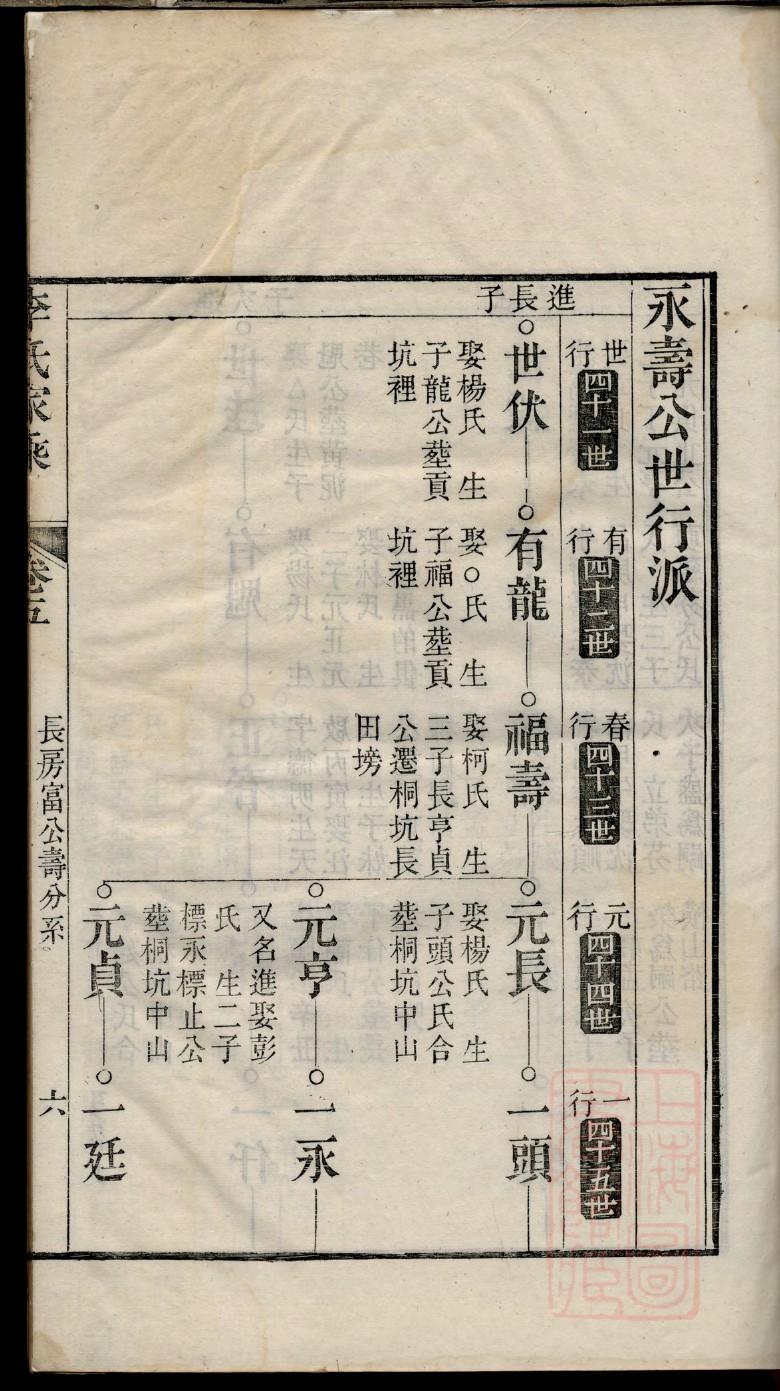 永壽公世行派
世行 四十一世
有行 四十二世
春行 四十三世
元行 四十四世
一行 四十五世
進長子
世伏
娶楊氏 生
子龍公塟貢
坑裡
有龍
娶○氏 生
子福公塟貢
坑裡
福壽
娶柯氏 生
三子長亨貞
公遷桐坑長
田塝
元長
娶楊氏 生
子頭公氏合
塟桐坑中山
一頭
元亨
又名進娶彭
氏 生二子
標永標止公
塟桐坑中山
一永
元貞
一廷
李氏家乘
卷五
長房富公壽分系
六